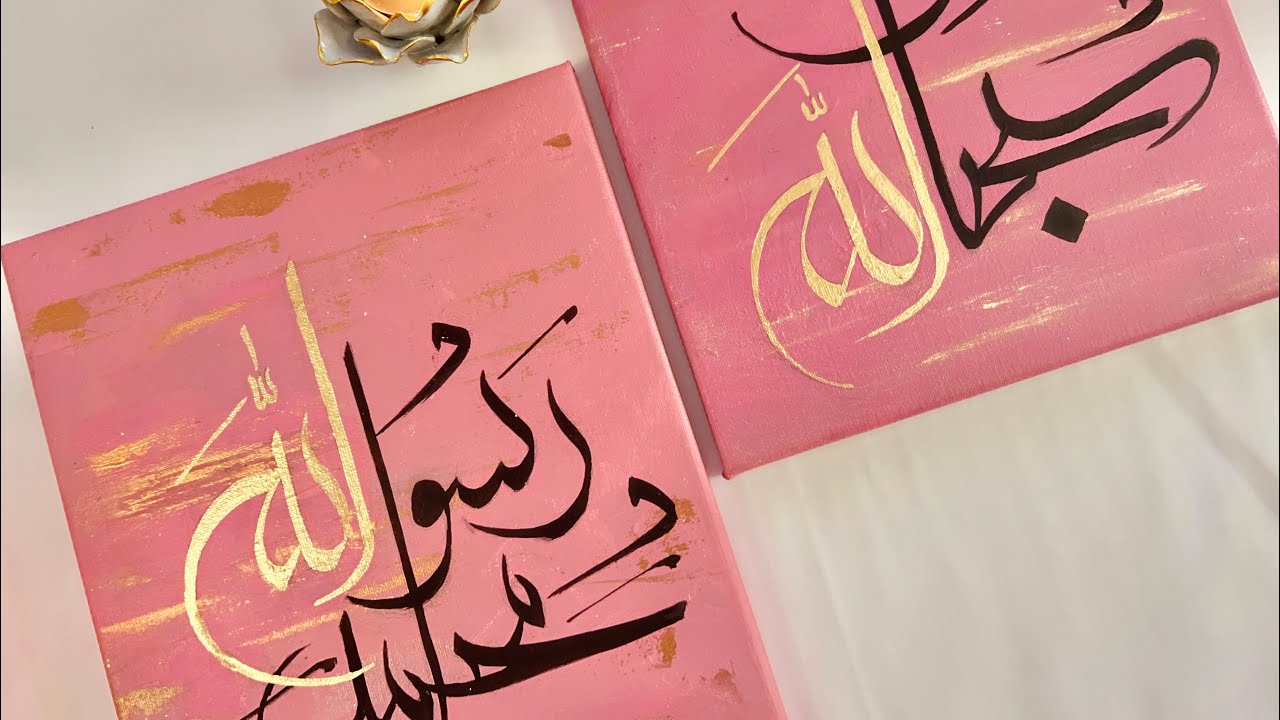 سبحان الله
رسول الله
محمد